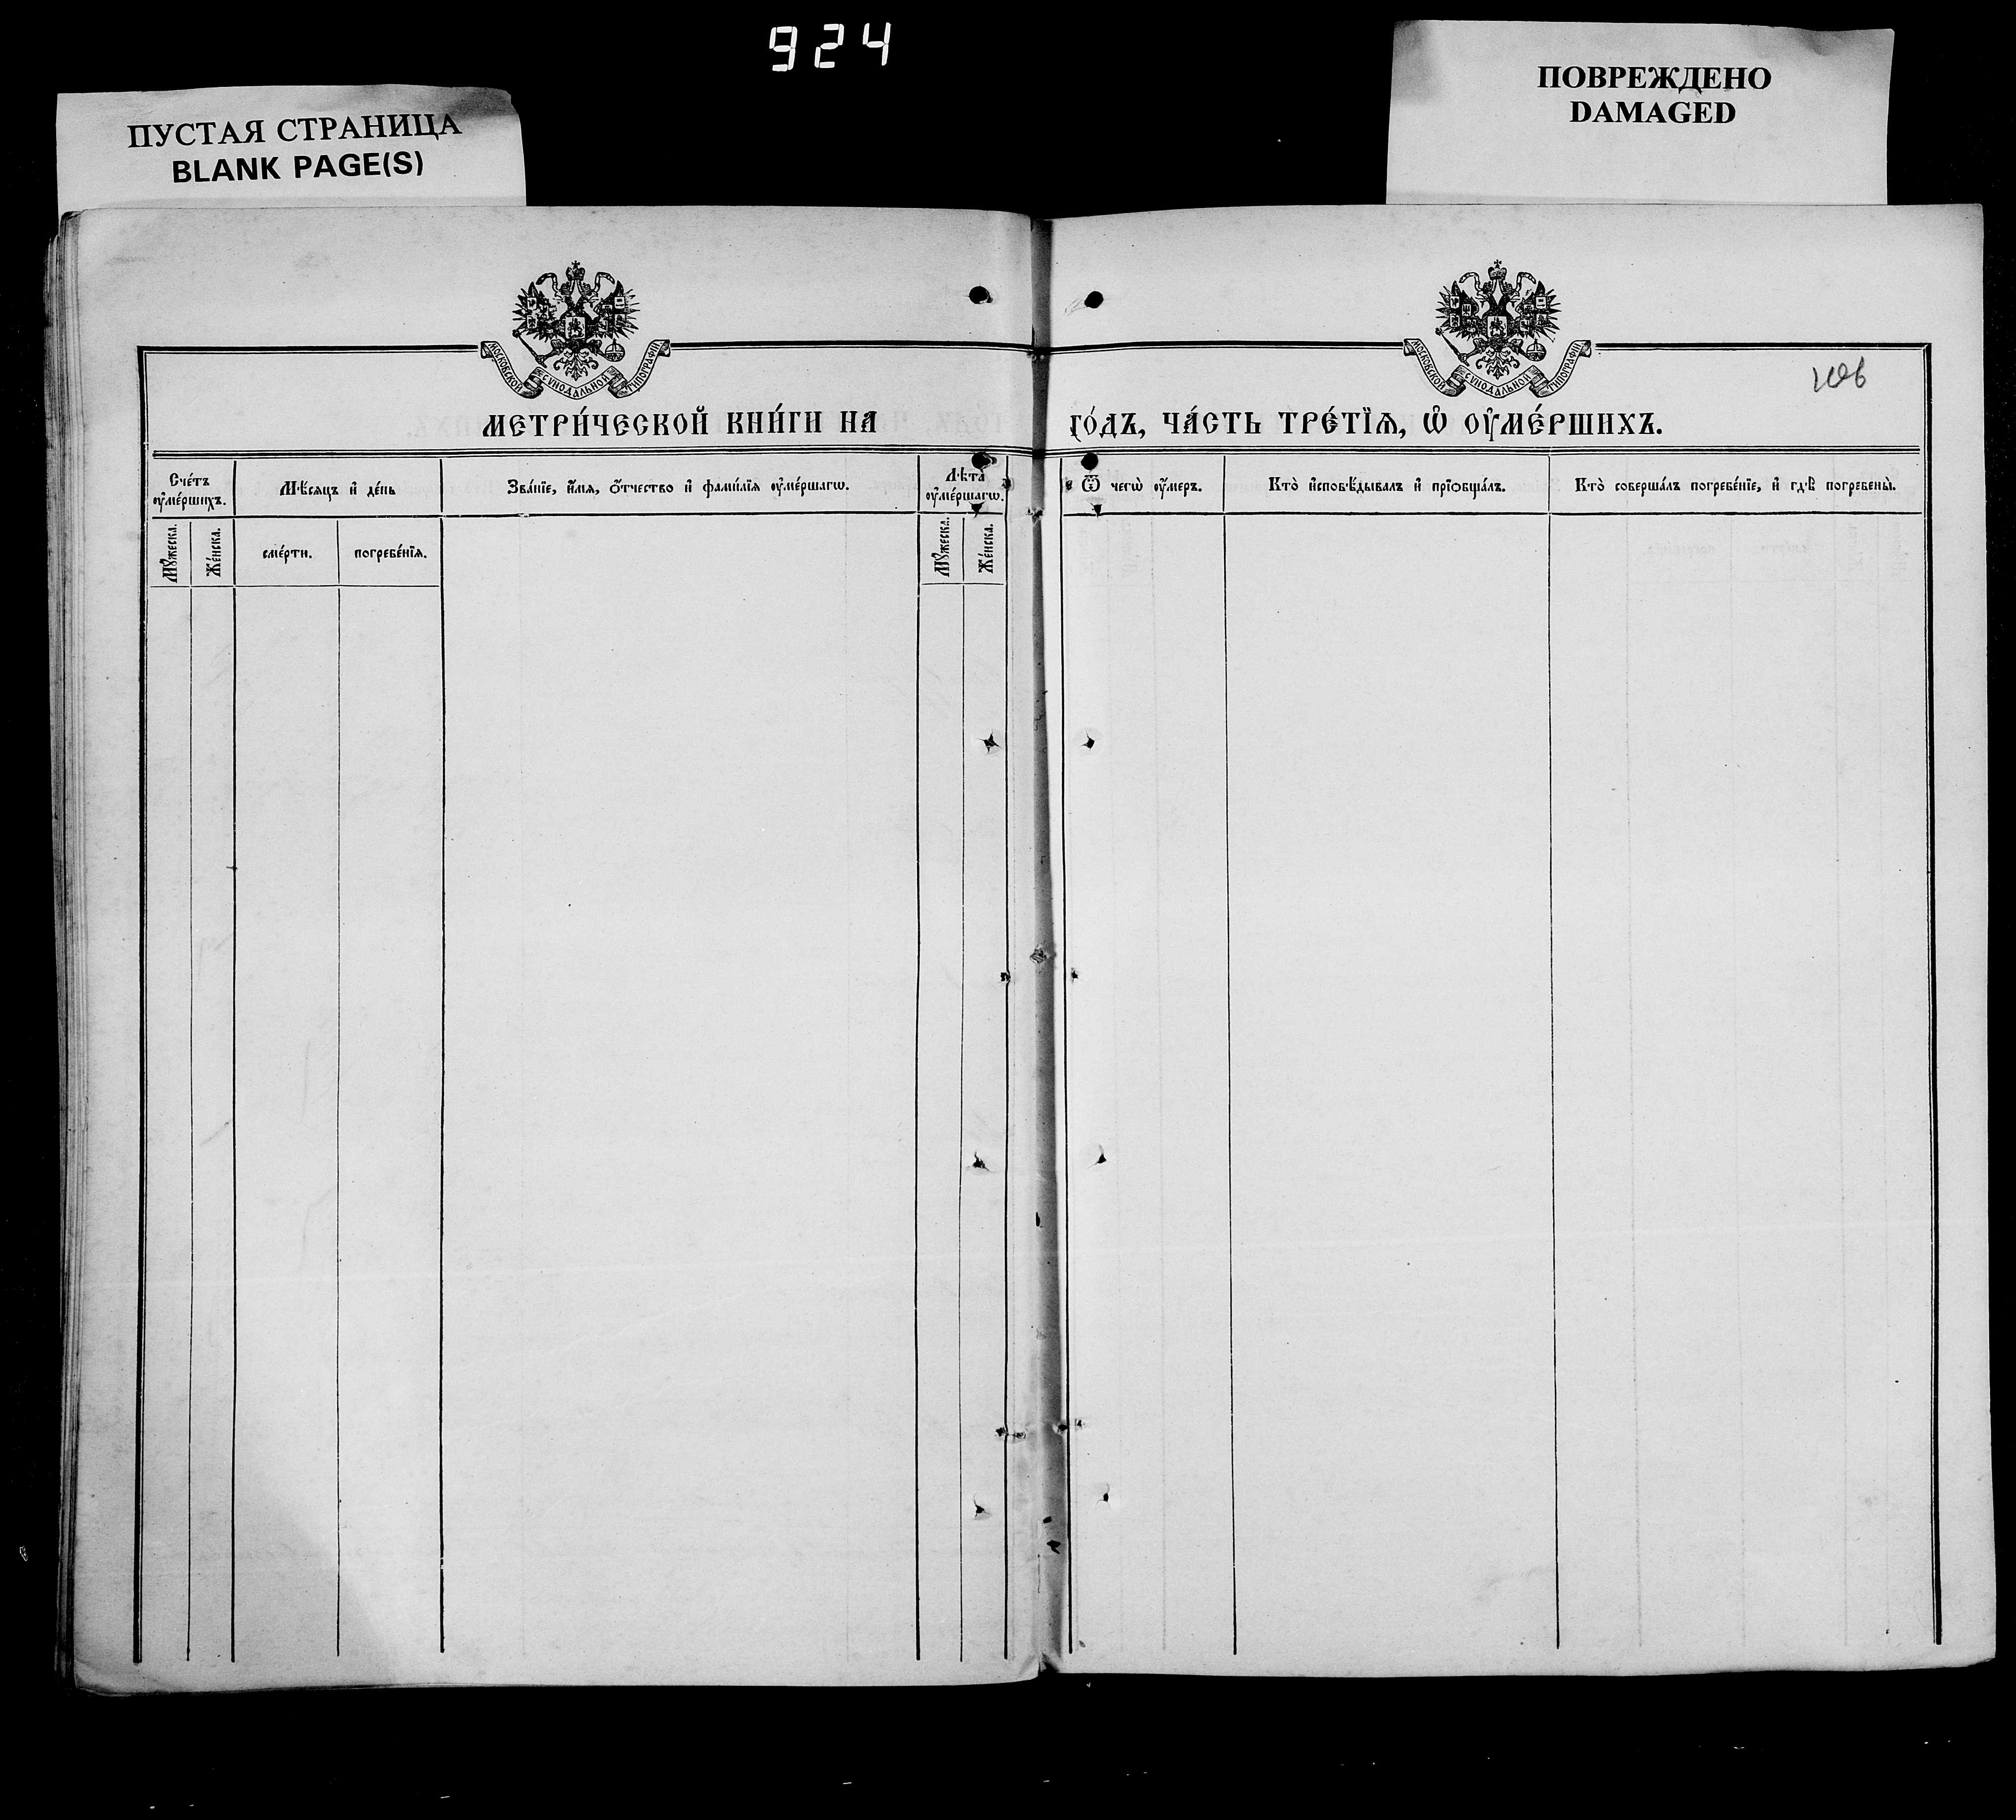 924
ПУСТАЯ СТРАНИЦА
BLANK PAGE(S)
ПОВРЕЖДЕНО
DAMAGED
МОСКОВСКОЙ СѴНОДАЛЬНОЙ ТИПОГРАФІИ
МОСКОВСКОЙ СѴНОДАЛЬНОЙ ТИПОГРАФІИ
МЕТРИ́ЧЕСКОЙ КНИ́ГИ НА
ГО́ДЪ, ЧА́СТЬ ТРЕ́ТЇѦ, Ѡ҆ ОУ҆МЕ́РШИХЪ.
Сче́тъ
ᲂу҆ме́ршихъ.
Мѣ́сяцъ и҆ де́нь
Зва́нїе, и҆́мя, ѻ҆́тчество и҆ фами́лїя ᲂу҆ме́ршагѡ.
Лѣ́та
ᲂу҆ме́ршагѡ.
Ѿ чегѡ̀ ᲂу҆́меръ.
Кто̀ и҆сповѣ́дывалъ и҆ прїѻбща́лъ.
Кто̀ соверша́лъ погребе́нїе, и҆ гдѣ̀ погребены̀.
Мꙋ́жеска.
Же́нска.
сме́рти.
погребе́нїя.
Мꙋ́жеска.
Же́нска.